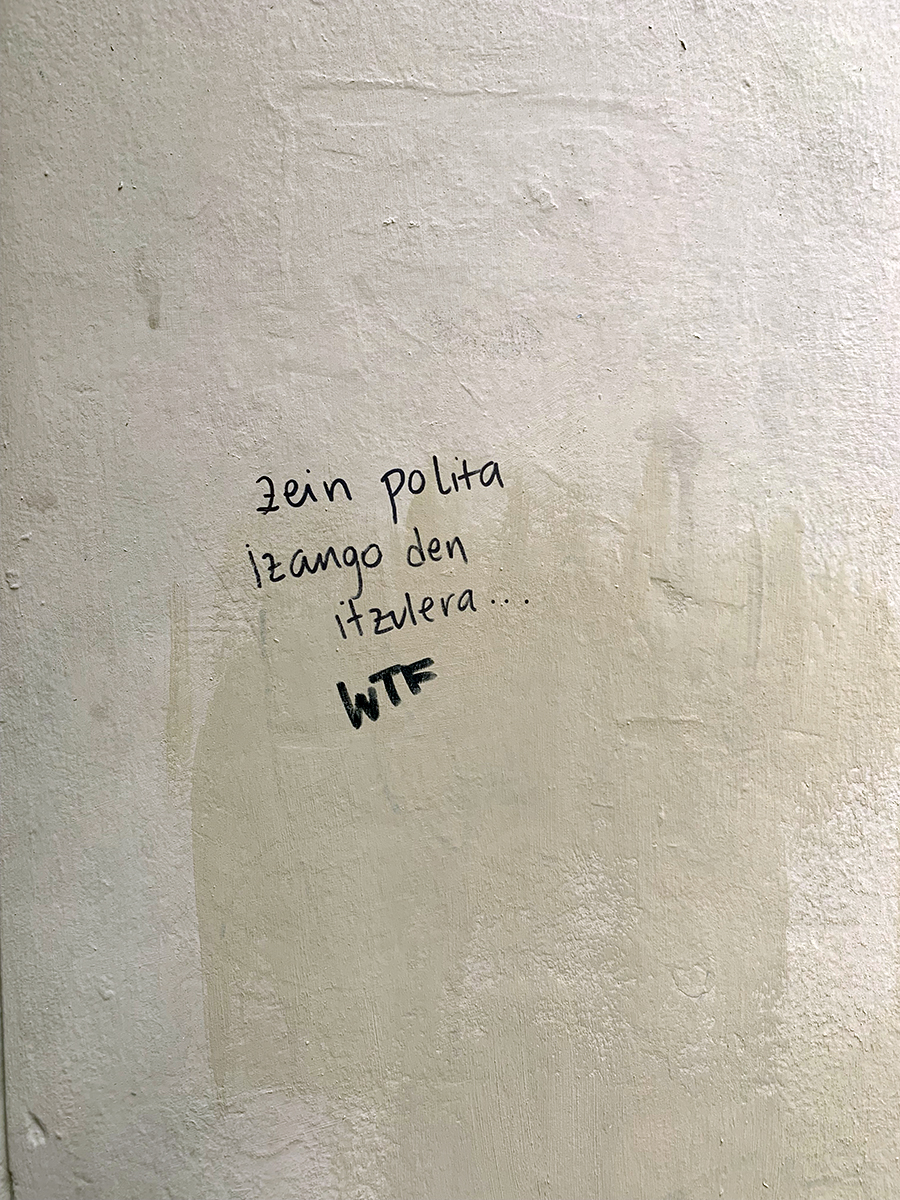 zein polita
izango den
itzulera...
WTF